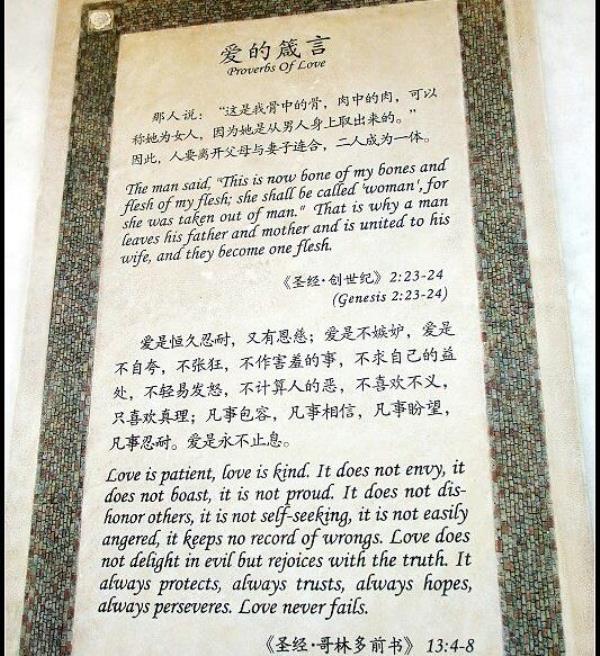 爱的箴言
Proverbs Of Love
那人说：“这是我骨中的骨，肉中的肉，可以
称她为女人，因为她是从男人身上取出来的。”
因此，人要离开父母与妻子连合，二人成为一体。
The man said, "This is now bone of my bones and
flesh of my flesh; she shall be called 'woman', for
she was taken out of man." That is why a man
leaves his father and mother and is united to his
wife, and they become one flesh.
《圣经·创世纪》2:23-24
(Genesis 2:23-24)
爱是恒久忍耐，又有恩慈；爱是不嫉妒，爱是
不自夸，不张狂，不作害羞的事，不求自己的益
处，不轻易发怒，不计算人的恶，不喜欢不义，
只喜欢真理；凡事包容，凡事相信，凡事盼望，
凡事忍耐。爱是永不止息。
Love is patient, love is kind. It does not envy, it
does not boast, it is not proud. It does not dis-
honor others, it is not self-seeking, it is not easily
angered, it keeps no record of wrongs. Love does
not delight in evil but rejoices with the truth. It
always protects, always trusts, always hopes,
always perseveres. Love never fails.
《圣经·哥林多前书》 13:4-8